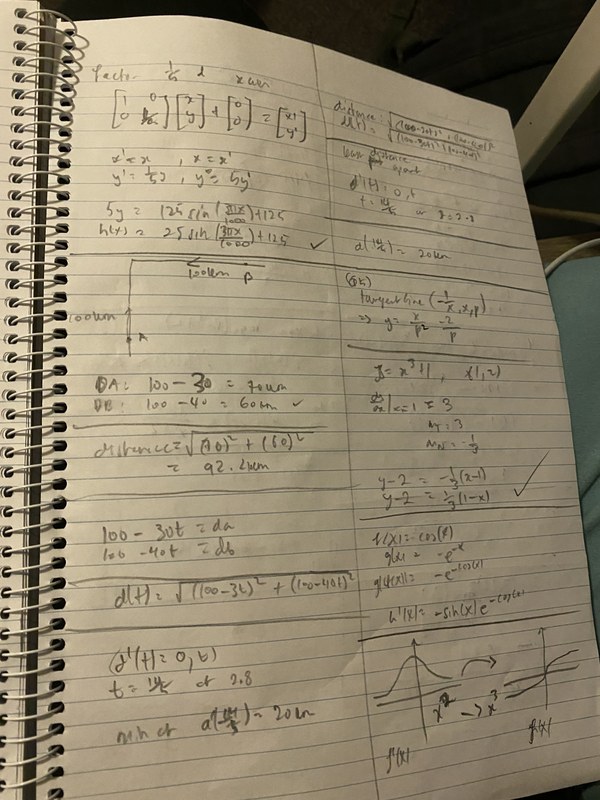 factor 1/5 d x axis
[1 0 0 1/5] [x y] + [0 0] = [x' y']
x' = x , x = x'
y' = 1/5 y , y = 5y'
5y = 125 sin(πx/1000) + 125
h(x) = 25 sin(πx/1000) + 125 ✓
100km P
100km
A
DA: 100 - 30 = 70km
DB: 100 - 40 = 60km ✓
distance = √((70)² + (60)²)
= 92.2km
100 - 30t = da
100 - 40t = db
d(t) = √((100-3t)² + (100-40t)²)
(d'(t) = 0, t)
t = 14/5 or 2.8
min at d(14/5) = 20km
distance:
d(t) =
distance apart
d'(t) = 0, t
t = 14/5 or t = 2.8
d(14/5) = 20km
tangent line (-1/x, x, p)
=> y = x/p² - 2/p
y = x³ + 1 , x(1,2)
dy/dx | x=1 = 3
m_T = 3
m_N = -1/3
y-2 = -1/3(x-1)
y-2 = 1/3(1-x) ✓
f(x) = cos(x)
g(x) = -e^-x
g(f(x)) = -e^-cos(x)
h'(x) = -sin(x)e^-cos(x)
x² -> x³
f'(x)
f(x)